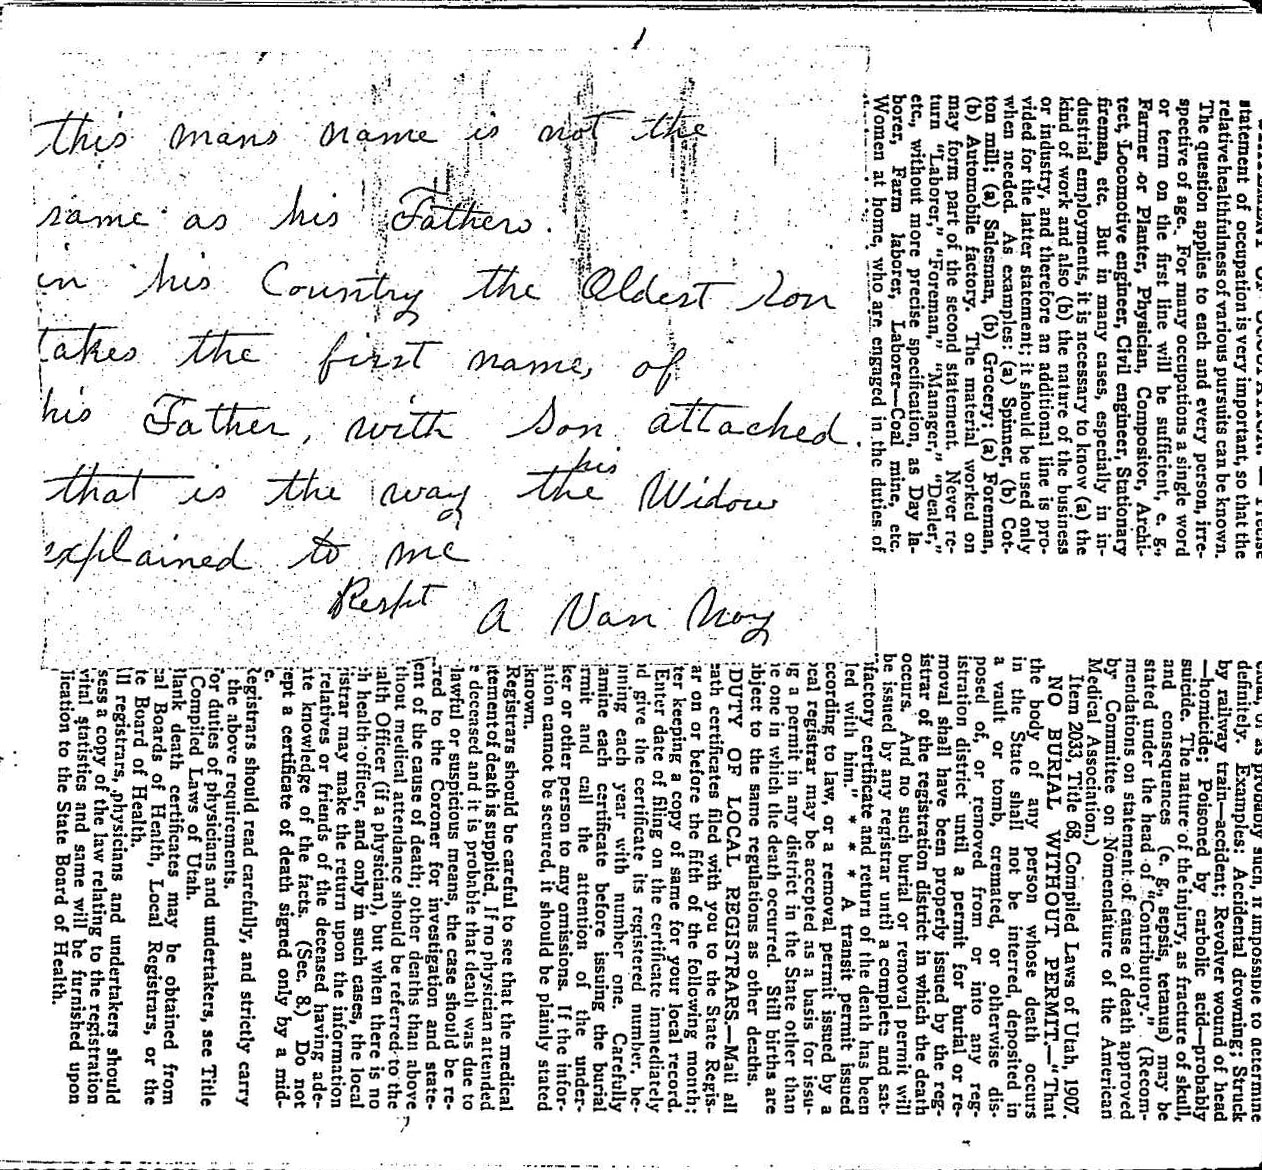 this mans name is not the
same as his Fathers.
in his Country the Oldest son
takes the first name, of
his Father, with son attached.
his
that is the way the Widow
explained to me
Respt A Van Noy
statement of occupation is very important, so that the
relative healthfulness of various pursuits can be known.
The question applies to each and every person, irre-
spective of age. For many occupations a single word
or term on the first line will be sufficient, e. g.,
Farmer or Planter, Physician, Compositor, Archi-
tect, Locomotive engineer, Civil engineer, Stationary
fireman, etc. But in many cases, especially in in-
dustrial employments, it is necessary to know (a) the
kind of work and also (b) the nature of the business
or industry, and therefore an additional line is pro-
vided for the latter statement; it should be used only
when needed. As examples: (a) Spinner, (b) Cot-
ton mill; (a) Salesman, (b) Grocery; (a) Foreman,
(b) Automobile factory. The material worked on
may form part of the second statement. Never re-
turn "Laborer," "Foreman," "Manager," "Dealer,"
etc., without more precise specification, as Day la-
borer, Farm laborer, Laborer—Coal mine, etc.
Women at home, who are engaged in the duties of
definitely. Examples: Accidental drowning; Struck
by railway train—accident; Revolver wound of head
—homicide; Poisoned by carbolic acid—probably
suicide. The nature of the injury, as fracture of skull,
and consequences (e. g., sepsis, tetanus) may be
stated under the head of "Contributory." (Recom-
mendations on statement of cause of death approved
by Committee on Nomenclature of the American
Medical Association.)
Item 2033, Title 68, Compiled Laws of Utah, 1907.
NO BURIAL WITHOUT PERMIT.—"That
the body of any person whose death occurs
in the State shall not be interred, deposited in
a vault or tomb, cremated, or otherwise dis-
posed of, or removed from or into any reg-
istration district until a permit for burial or re-
moval shall have been properly issued by the reg-
istrar of the registration district in which the death
occurs. And no such burial or removal permit will
be issued by any registrar until a complete and sat-
isfactory certificate and return of the death has been
led with him." * * * A transit permit issued
ccording to law, or a removal permit issued by a
cal registrar may be accepted as a basis for issu-
g a permit in any district in the State other than
e one in which the death occurred. Still births are
bject to the same regulations as other deaths.
DUTY OF LOCAL REGISTRARS.—Mail all
eath certificates filed with you to the State Regis-
ar on or before the fifth of the following month;
ter keeping a copy of same for your local record.
Enter date of filing on the certificate immediately
d give the certificate its registered number, be-
nning each year with number one. Carefully
amine each certificate before issuing the burial
rmit and call the attention of the under-
ker or other person to any omissions. If the infor-
ation cannot be secured, it should be plainly stated
known.
Registrars should be careful to see that the medical
tement of death is supplied. If no physician attended
e deceased and it is probable that death was due to
lawful or suspicious means, the case should be re-
rred to the Coroner for investigation and state-
ent of the cause of death; other deaths than above
thout medical attendance should be referred to the
alth Officer (if a physician), but when there is no
h health officer, and only in such cases, the local
istrar may make the return upon the information
relatives or friends of the deceased having ade-
te knowledge of the facts. (Sec. 8.) Do not
ept a certificate of death signed only by a mid-
e.
Registrars should read carefully, and strictly carry
the above requirements.
For duties of physicians and undertakers, see Title
Compiled Laws of Utah.
lank death certificates may be obtained from
al Boards of Health, Local Registrars, or the
te Board of Health.
ll registrars, physicians and undertakers should
sess a copy of the law relating to the registration
vital statistics and same will be furnished upon
lication to the State Board of Health.